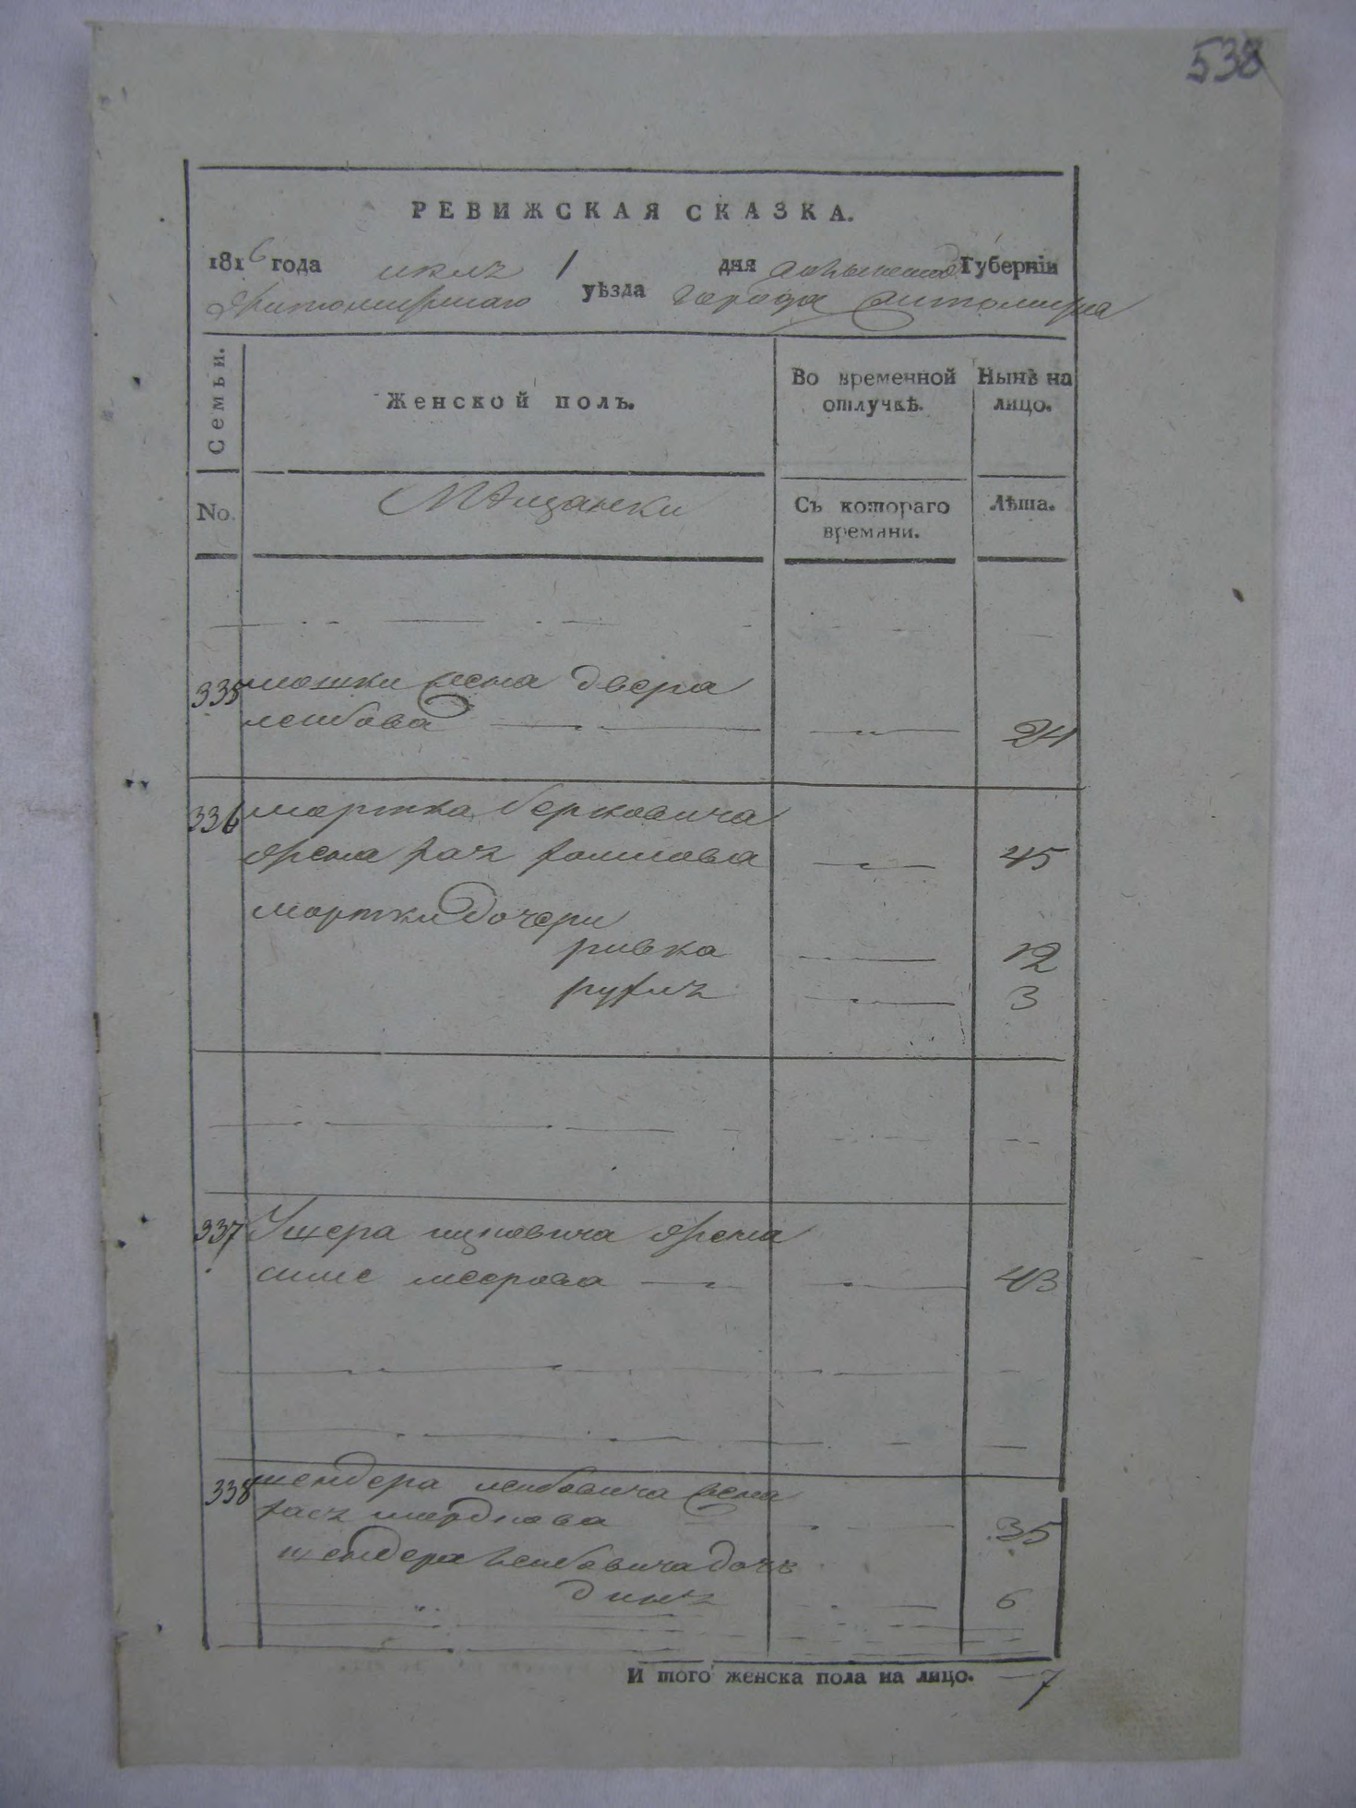 538
РЕВИЖСКАЯ СКАЗКА.
1816 года июля 1 дня волынской Губерніи
Житомирскаго уѣзда города Житомира
Семьи.
Женской полъ.
Во временной отлучкѣ.
Нынѣ на лицо.
No.
Мѣщанки
Съ котораго времяни.
Лѣта.
335 мошки жена двера
лейбова 24
336 мортка берковича
жена 45
мортки дочери
ривка 12
рухля 3
337 Ушера ицковича жена
симе меерова 43
338 шендера лейбовича жена
мордкова 35
шендера лейбовича дочь
6
И того женска пола на лицо. 7